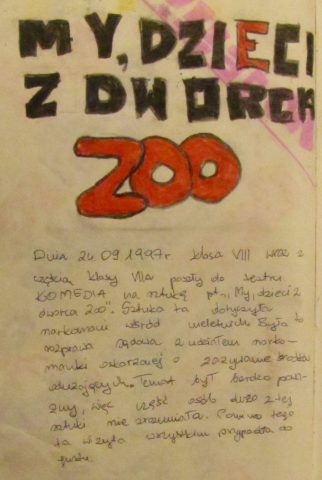 MY, DZIECI
Z DWORCA
ZOO
Dnia 24.09.1997r. klasa VIII wraz z
częścią klasy VIIa poszły do teatru
KOMEDIA na sztukę pt. "My, dzieci z
dworca Zoo". Sztuka ta dotyczyła
narkomanii wśród nieletnich. Była to
rozprawa sądowa z udziałem narko-
manki oskarżonej o zażywanie środków
odurzających. Temat był bardzo powa-
żny, więc część osób dużo z tej
sztuki nie zrozumiała. Pomimo tego
ta wizyta wszystkim przypadła do
gustu.